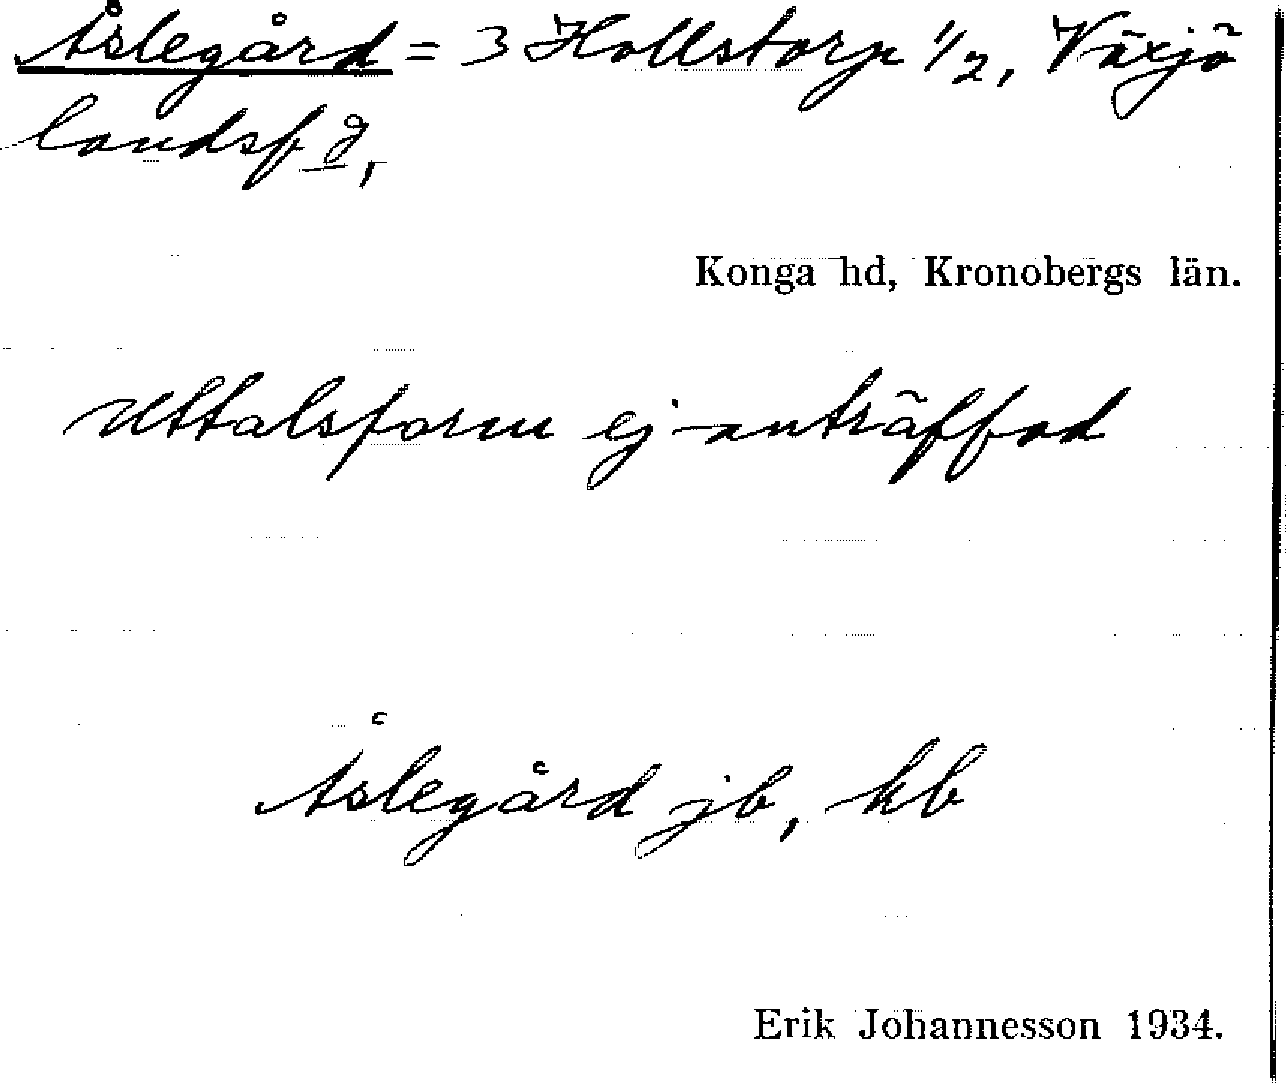 Åslegård = 3 Hollstorp 1/2, Växjö
landsf d,
Konga hd, Kronobergs län.
Uttalsform ej anträffad
Åslegård jb, kb
Erik Johannesson 1934.